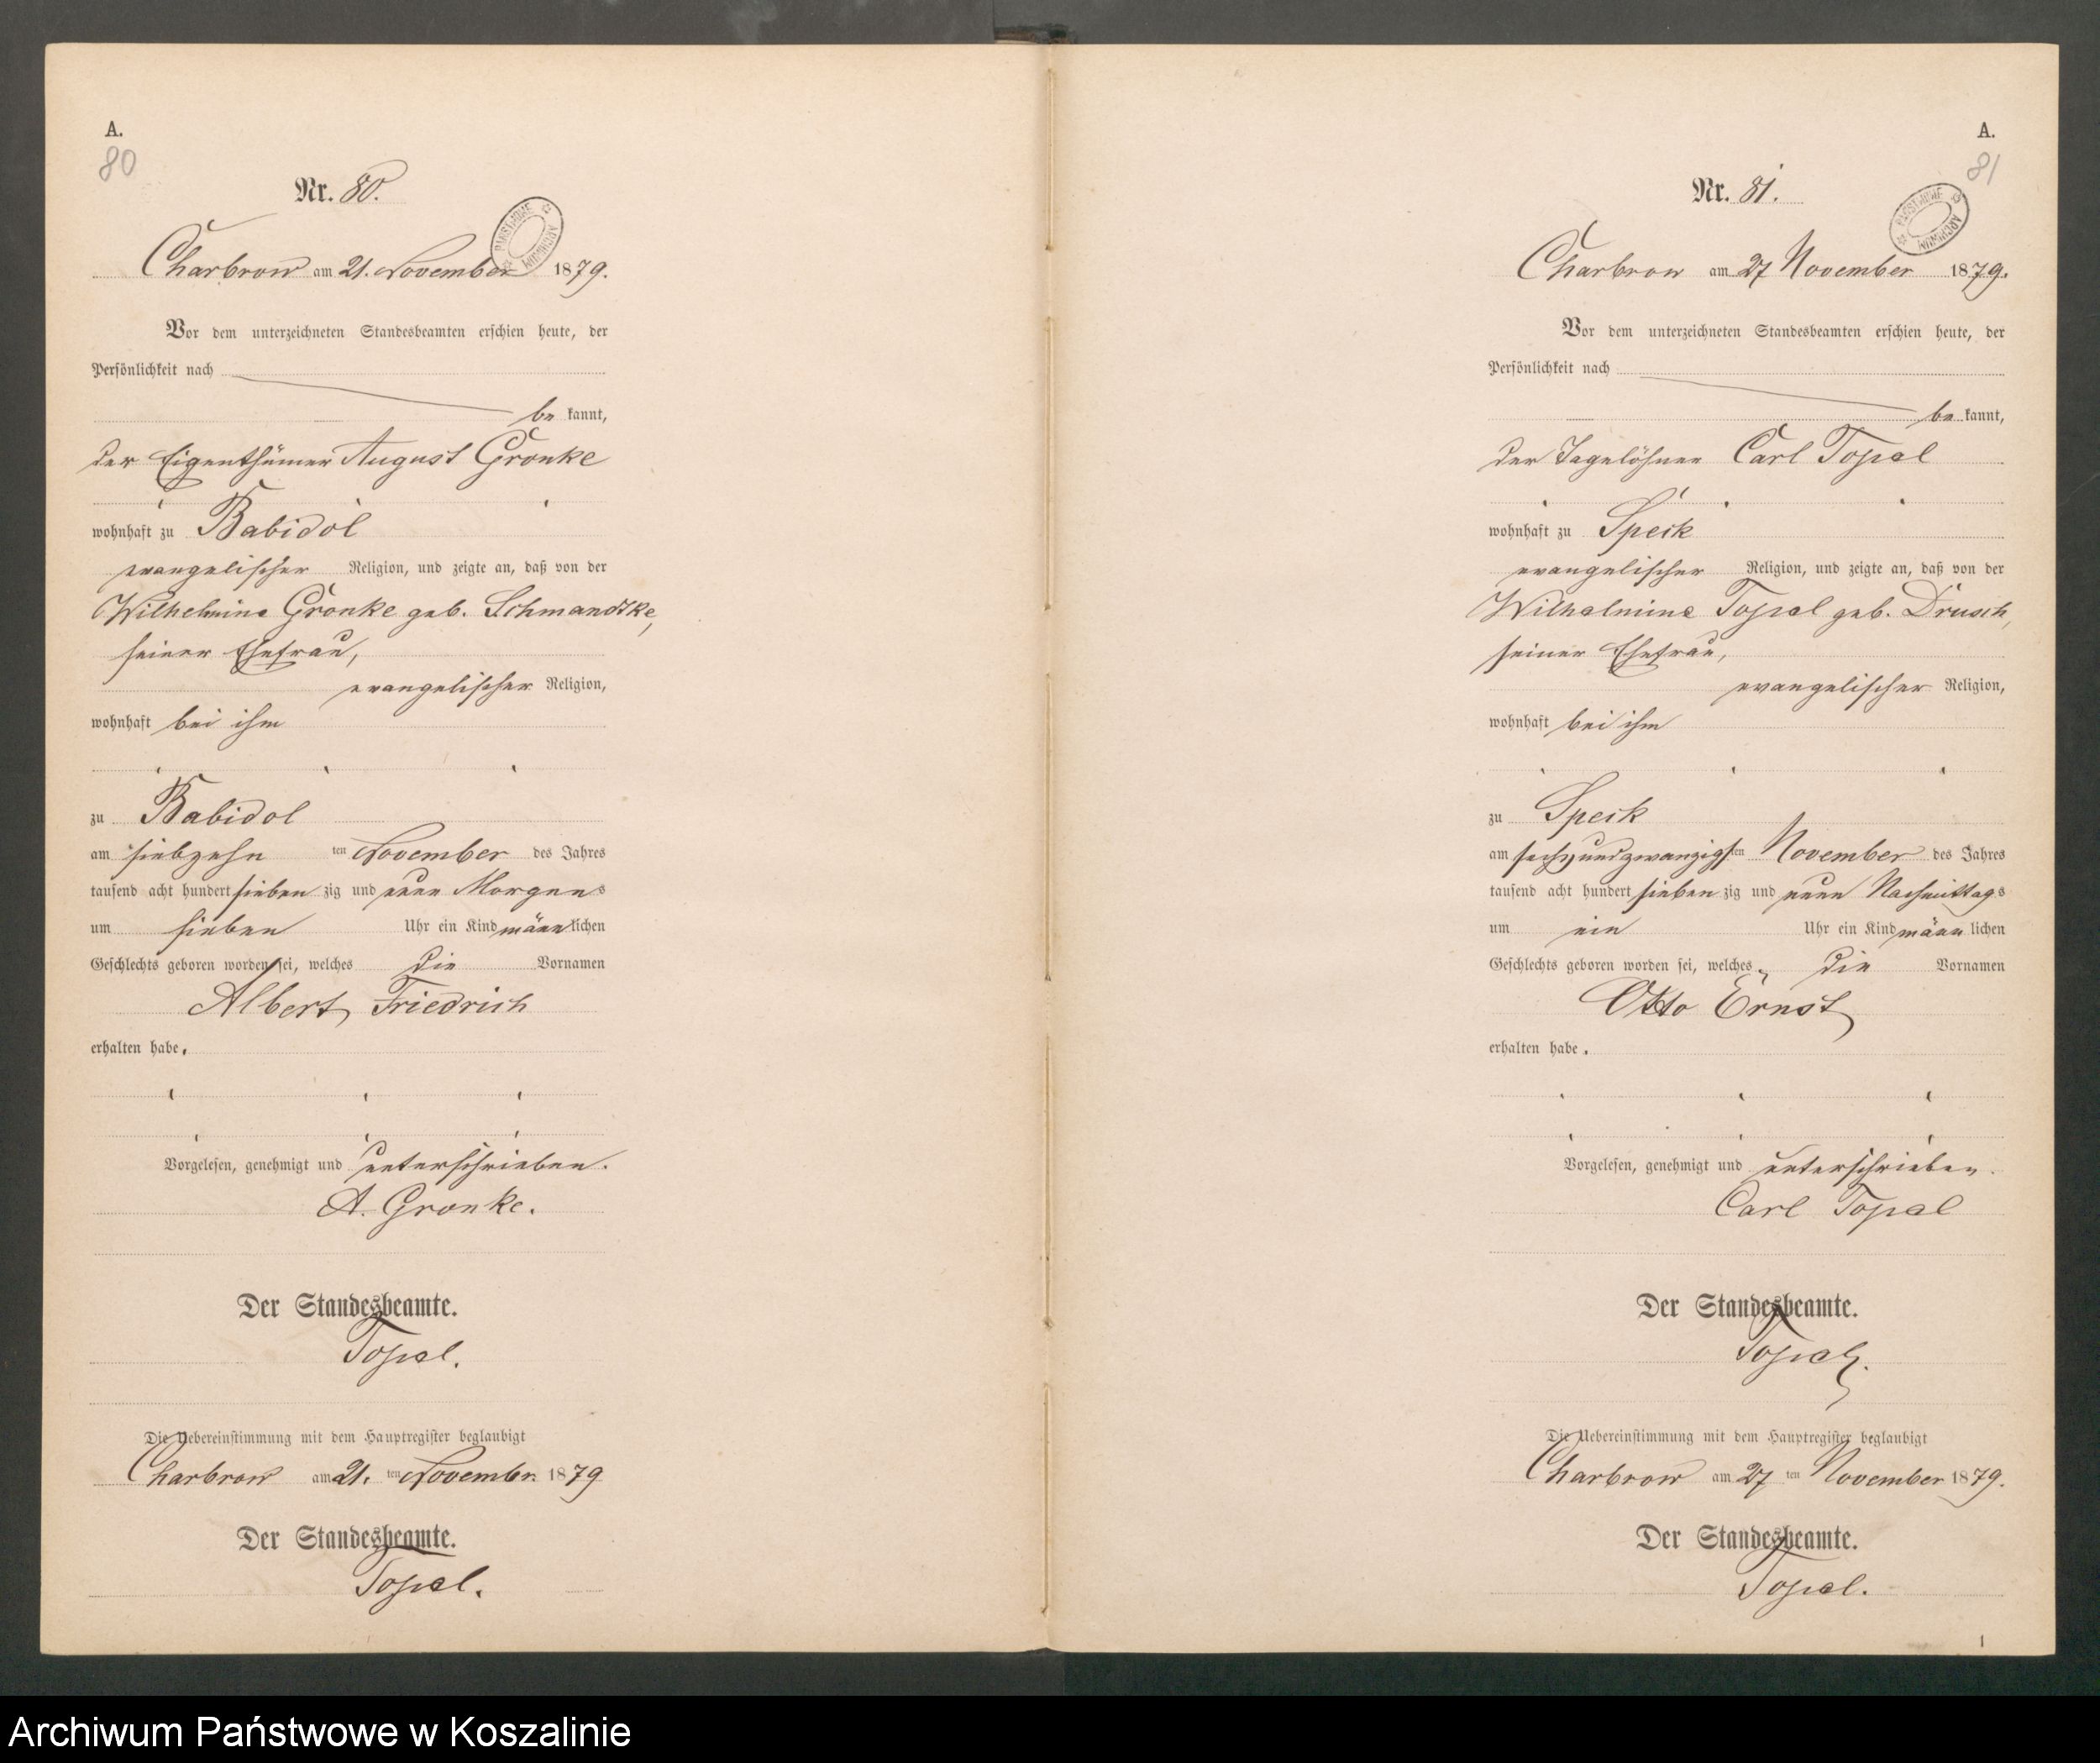 A.
80
Nr. 80.
PAŃSTWOWE ARCHIWUM
Charbrow am 21. November 1879.
Vor dem unterzeichneten Standesbeamten erschien heute, der
Persönlichkeit nach
be kannt,
der Eigenthümer August Gronke
wohnhaft zu Babidol
evangelischer Religion, und zeigte an, daß von der
Wilhelmine Gronke geb. Schmandtke,
seiner Ehefrau,
evangelischer Religion,
wohnhaft bei ihm
zu Babidol
am siebzehn ten November des Jahres
tausend acht hundert sieben zig und neun Morgens
um sieben Uhr ein Kind männlichen
Geschlechts geboren worden sei, welches die Vornamen
Albert Friedrich
erhalten habe.
Vorgelesen, genehmigt und unterschrieben.
A. Gronke.
Der Standesbeamte.
Topel.
Die Uebereinstimmung mit dem Hauptregister beglaubigt
Charbrow am 21. ten Novembr. 1879
Der Standesbeamte.
Topel.
A.
81
Nr. 81.
PAŃSTWOWE ARCHIWUM
Charbrow am 27 November 1879.
Vor dem unterzeichneten Standesbeamten erschien heute, der
Persönlichkeit nach
be kannt,
der Tagelöhner Carl Topel
wohnhaft zu Speck
evangelischer Religion, und zeigte an, daß von der
Wilhelmine Topel geb. Drusch,
seiner Ehefrau,
evangelischer Religion,
wohnhaft bei ihm
zu Speck
am sechsundzwanzigsten November des Jahres
tausend acht hundert sieben zig und neun Nachmittags
um ein Uhr ein Kind männlichen
Geschlechts geboren worden sei, welches die Vornamen
Otto Ernst
erhalten habe.
Vorgelesen, genehmigt und unterschrieben.
Carl Topel
Der Standesbeamte.
Topel.
Die Uebereinstimmung mit dem Hauptregister beglaubigt
Charbrow am 27 ten November 1879.
Der Standesbeamte.
Topel.
1
Archiwum Państwowe w Koszalinie